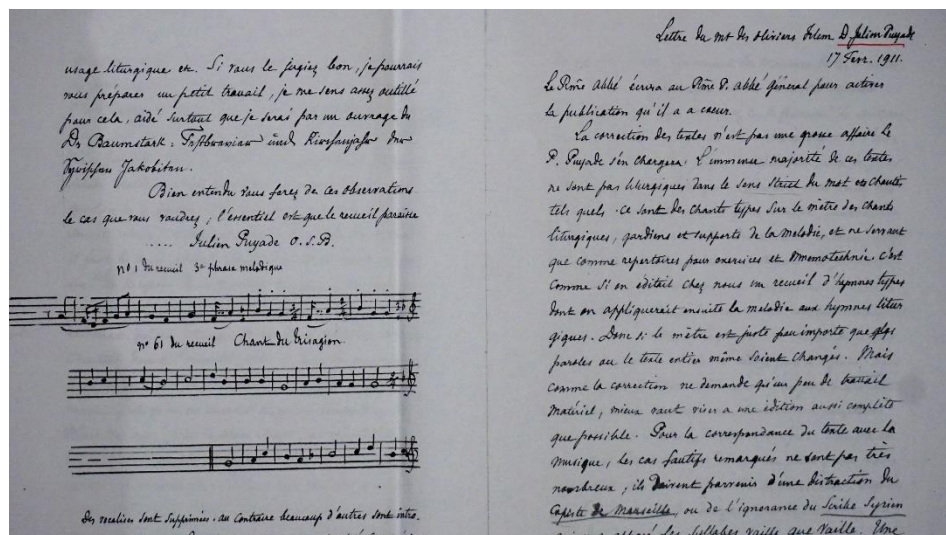 usage liturgique etc. Si vous le jugiez bon, je pourrais
vous préparer un petit travail, je me sens assez outillé
pour cela, aidé surtout que je serai par un ouvrage du
Dr Baumstark : Festbrevier und Kirchenjahr der
Syrischen Jakobiten.
Bien entendu vous ferez de ces observations
le cas que vous voudrez ; l'essentiel est que le recueil paraisse
.... Julien Puyade O.S.B.
n° 1 du recueil 3e phrase mélodique
n° 61 du recueil Chant du Trisagion.
Des vocalises sont supprimées. au contraire beaucoup d'autres sont intro-
Lettre du mt des oliviers Jélem D. Julien Puyade
17 Fevr. 1911.
Le Rme abbé écrira au Rme P. abbé général pour activer
la publication qu'il a a cœur.
La correction des textes n'est pas une grosse affaire le
P. Puyade s'en chargera. L'immense majorité de ces textes
ne sont pas liturgiques dans le sens strict du mot et chantés
tels quels. ce sont des chants types sur le mètre des chants
liturgiques, gardiens et supports de la mélodie, et ne servant
que comme repertoires pour exercices et Mnemotechnie. c'est
comme si on éditait chez nous un recueil d'hymnes types
dont on appliquerait ensuite la melodie aux hymnes litur
giques. Donc si le mètre est juste peu importe que qlqs
paroles ou le texte entier même soient changés. Mais
comme la correction ne demande qu'un peu de travail
matériel, mieux vaut viser a une édition aussi complète
que possible. Pour la correspondance du texte avec la
musique, les cas fautifs remarqués ne sont pas très
nombreux ; ils doivent provenir d'une distraction du
Copiste de Marseille, ou de l'ignorance du Scribe Syrien
les syllabes vaille que vaille. Une